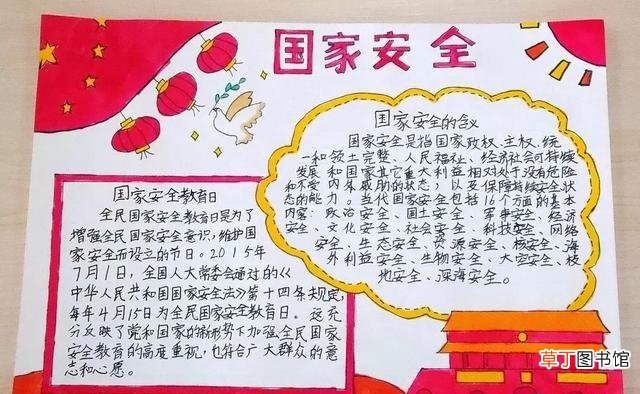 国家安全
国家安全的含义
国家安全是指国家政权、主权、统
一和领土完整、人民福祉、经济社会可持续
发展和国家其它重大利益相对处于没有危险
和不受内外威胁的状态，以及保障持续安全状
态的能力。当代国家安全包括16个方面的基本
内容：政治安全、国土安全、军事安全、经济
安全、文化安全、社会安全、科技安全、网络
安全、生态安全、资源安全、核安全、海
外利益安全、生物安全、太空安全、极
地安全、深海安全。
国家安全教育日
全民国家安全教育日是为了
增强全民国家安全意识，维护国
家安全而设立的节日。2015年
7月1日，全国人大常委会通过的《
中华人民共和国国家安全法》第十四条规定，
每年4月15日为全民国家安全教育日。这充
分反映了党和国家的新形势下加强全民国家
安全教育的高度重视，也符合广大群众的意
志和心愿。
草丁图书馆